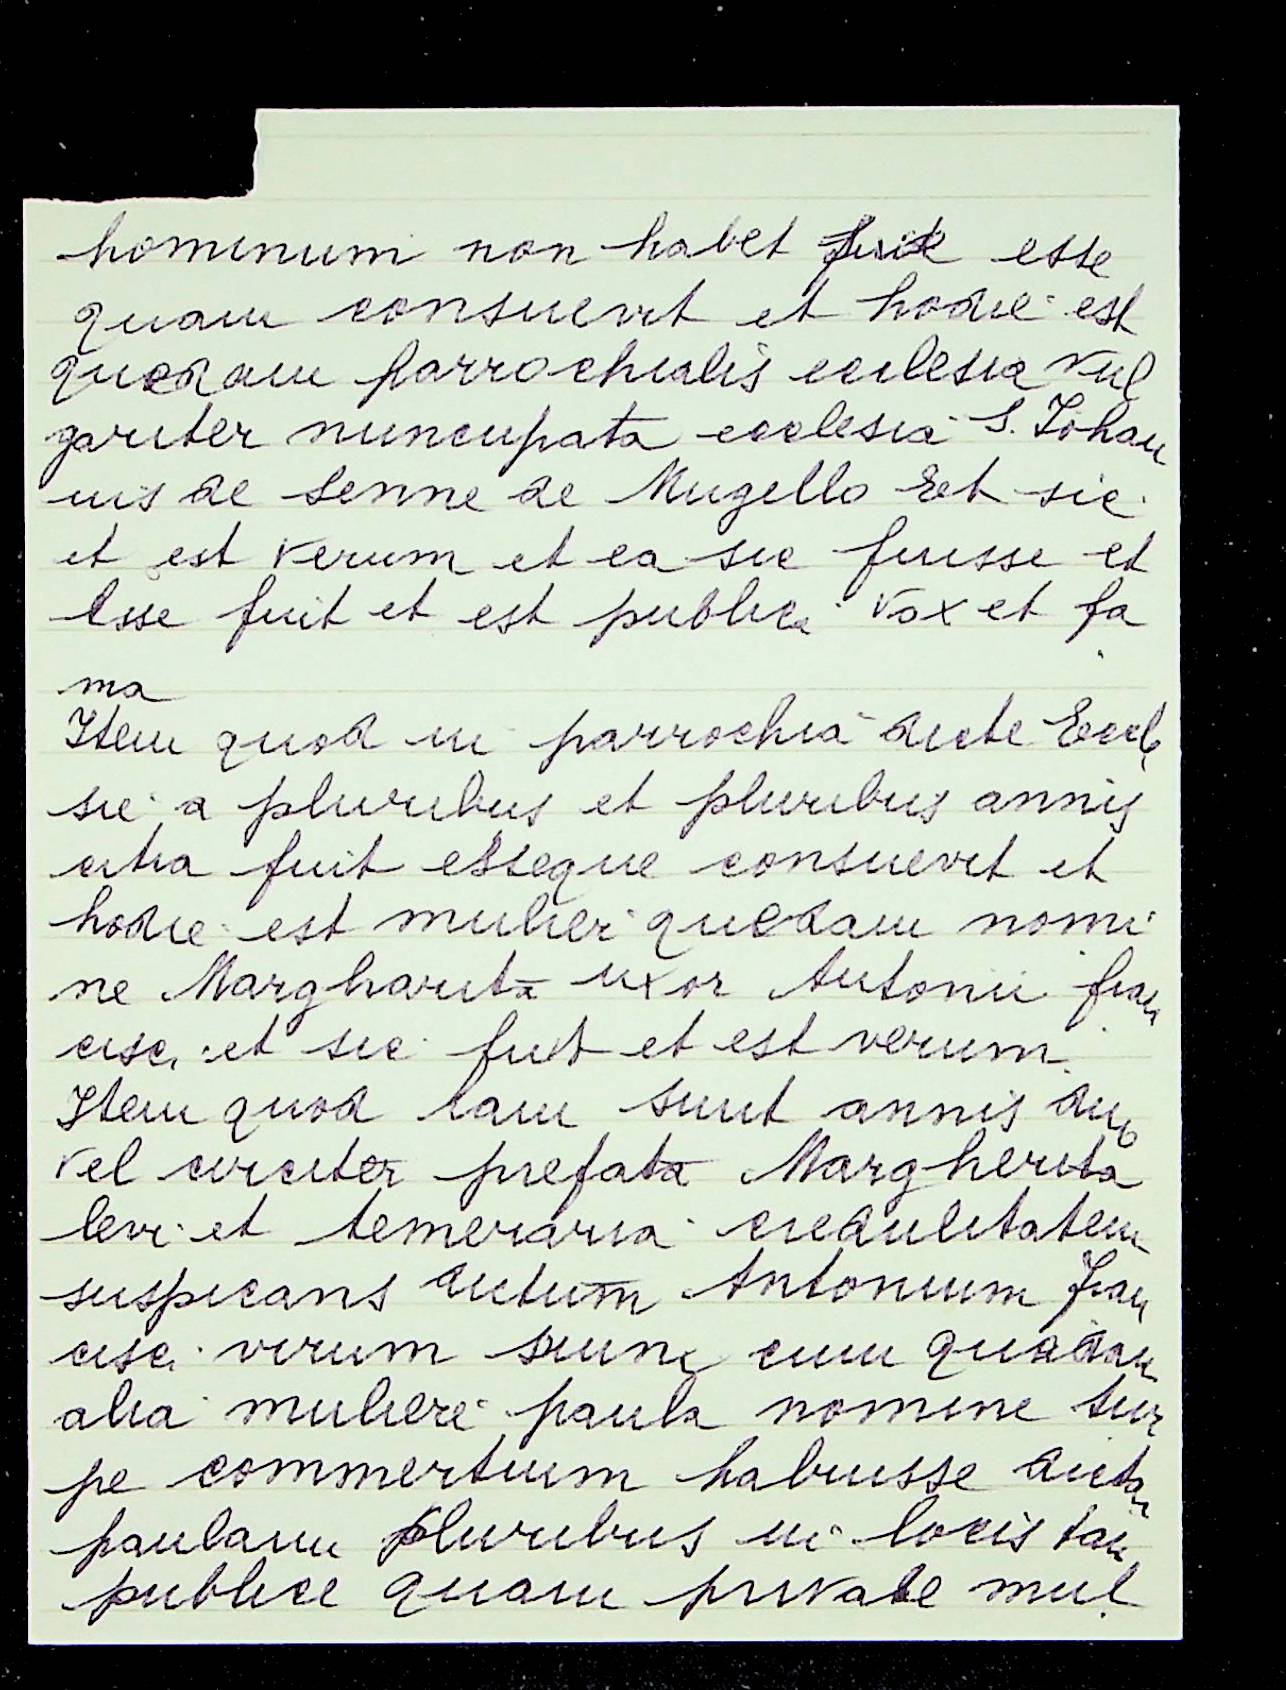 hominum non habet fuit esse
quam consuevit et hodie est
quedam parrochialis ecclesia vul
gariter nuncupata ecclesia S. Johan
nis de Senne de Mugello Et sic
et est verum et ea sic fuisse et
esse fuit et est publica vox et fa
ma
Item quod in parrochia dicte Eccle
sie a pluribus et pluribus annis
citra fuit esseque consuevit et
hodie est mulier quedam nomi
ne Margharita uxor Antonii fran
cisci et sic fuit et est verum.
Item quod iam sunt annis duo
vel circiter prefata Margherita
levi et temeraria credulitatem
suspicans dictum Antonium Fran
cisci virum suum cum quadam
alia muliere paula nomine tur
pe commertium habuisse dictam
paulam pluribus in locis tam
publice quam private mul